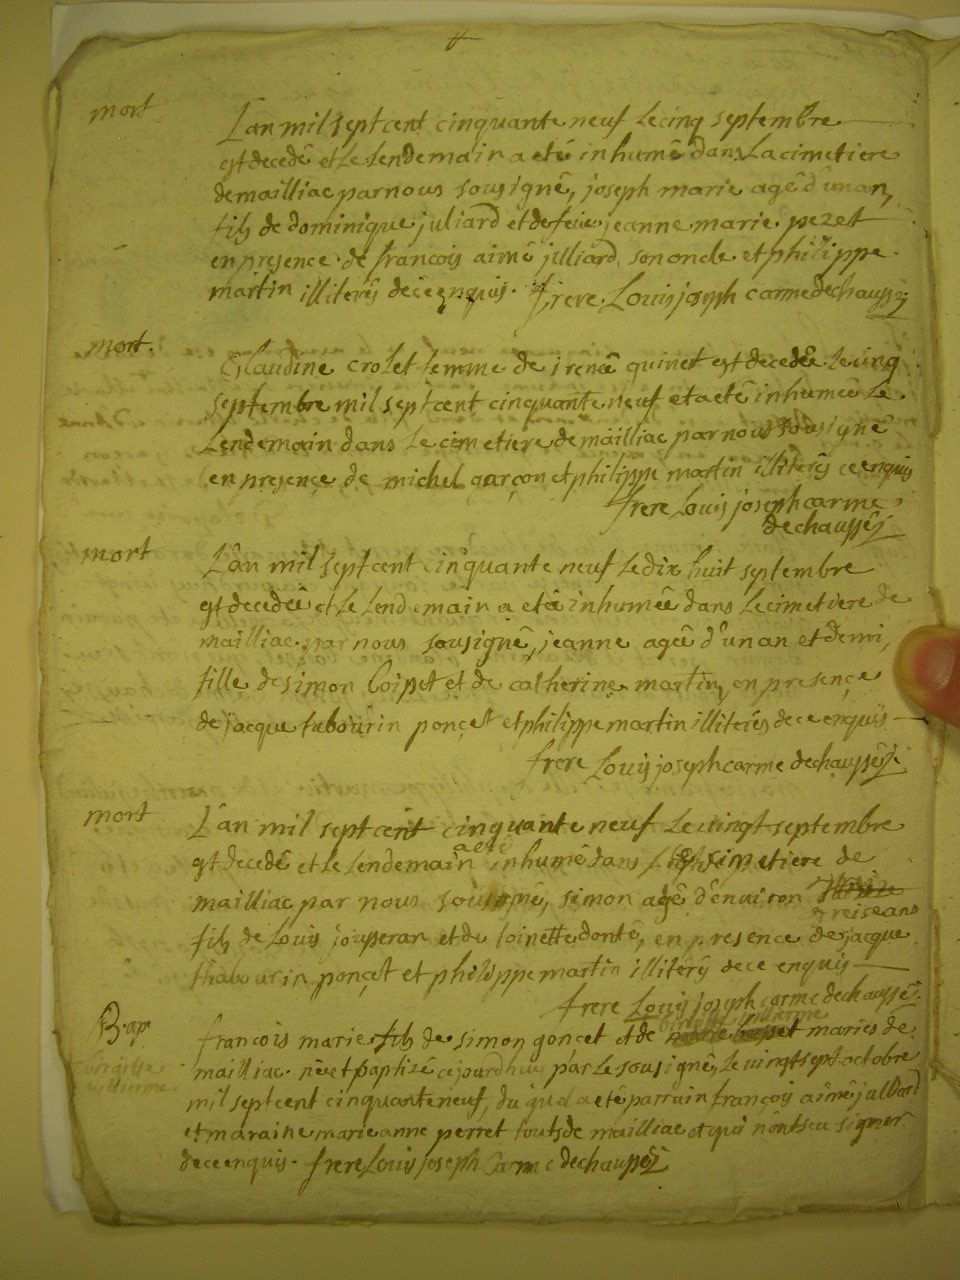 mort
L'an mil sept cent cinquante neuf le cinq septembre
est decedé et le lendemain a eté inhumé dans la cimetiere
de mailliac par nous sousigné, joseph marie agé d'un an,
fils de dominique juliard et de feue jeanne marie pezet
en presence de francois aimé julliard son oncle et philippe
martin illiterés de ce enquis. frere Louis joseph carme dechaussé
mort.
Claudine crolet femme de irené quinet est decedée le cinq
septembre mil sept cent cinquante neuf et a eté inhumée le
Lendemain dans le cimetiere de mailliac par nous sousigné
en presence de michel garçon et philippe martin illiterés ce enquis
frere Louis joseph carme
dechaussé
mort
L'an mil sept cent cinquante neuf le dix huit septembre
est decedeé et le lendemain a eté inhumée dans le cimetiere de
mailliac par nous sousigné, jeanne ageé d'un an et demi,
fille de simon Coipet et de catherine martin, en presence
de jacque tabourin ponçet et philippe martin illiterés de ce enquis
frere Louis joseph carme dechaussé
mort
L'an mil sept cent cinquante neuf le vingt septembre
a eté
est decedé et le lendemain inhumé dans le cimetiere de
mailliac par nous sousigné, simon agé d'environ
treise ans
fils de Louis jousseran et de toinette donté, en presence de jacque
thabourin ponçet et philippe martin illiterés de ce enquis
frere Louis joseph carme dechaussé
B. ap.
brigitte guillerme
francois marie fils de simon goncet et de mariés de
brigitte
guillerme
mailliac né et baptisé ce jourd'hui par le sousigné, le vingt sept octobre
mil sept cent cinquante neuf, du quel a eté parrain françois aimé julliard
et maraine marie anne perret touts de mailliac et qui n'ont scu signer
de ce enquis. frere Louis joseph Carme dechaussé